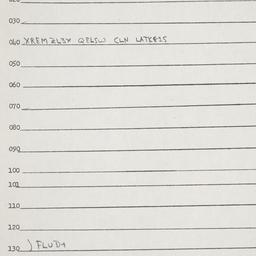 030
040 XREMZL3X QELSW CLN LATKE1S
050
060
070
080
090
100
101
110
120
130 ) FLUD1